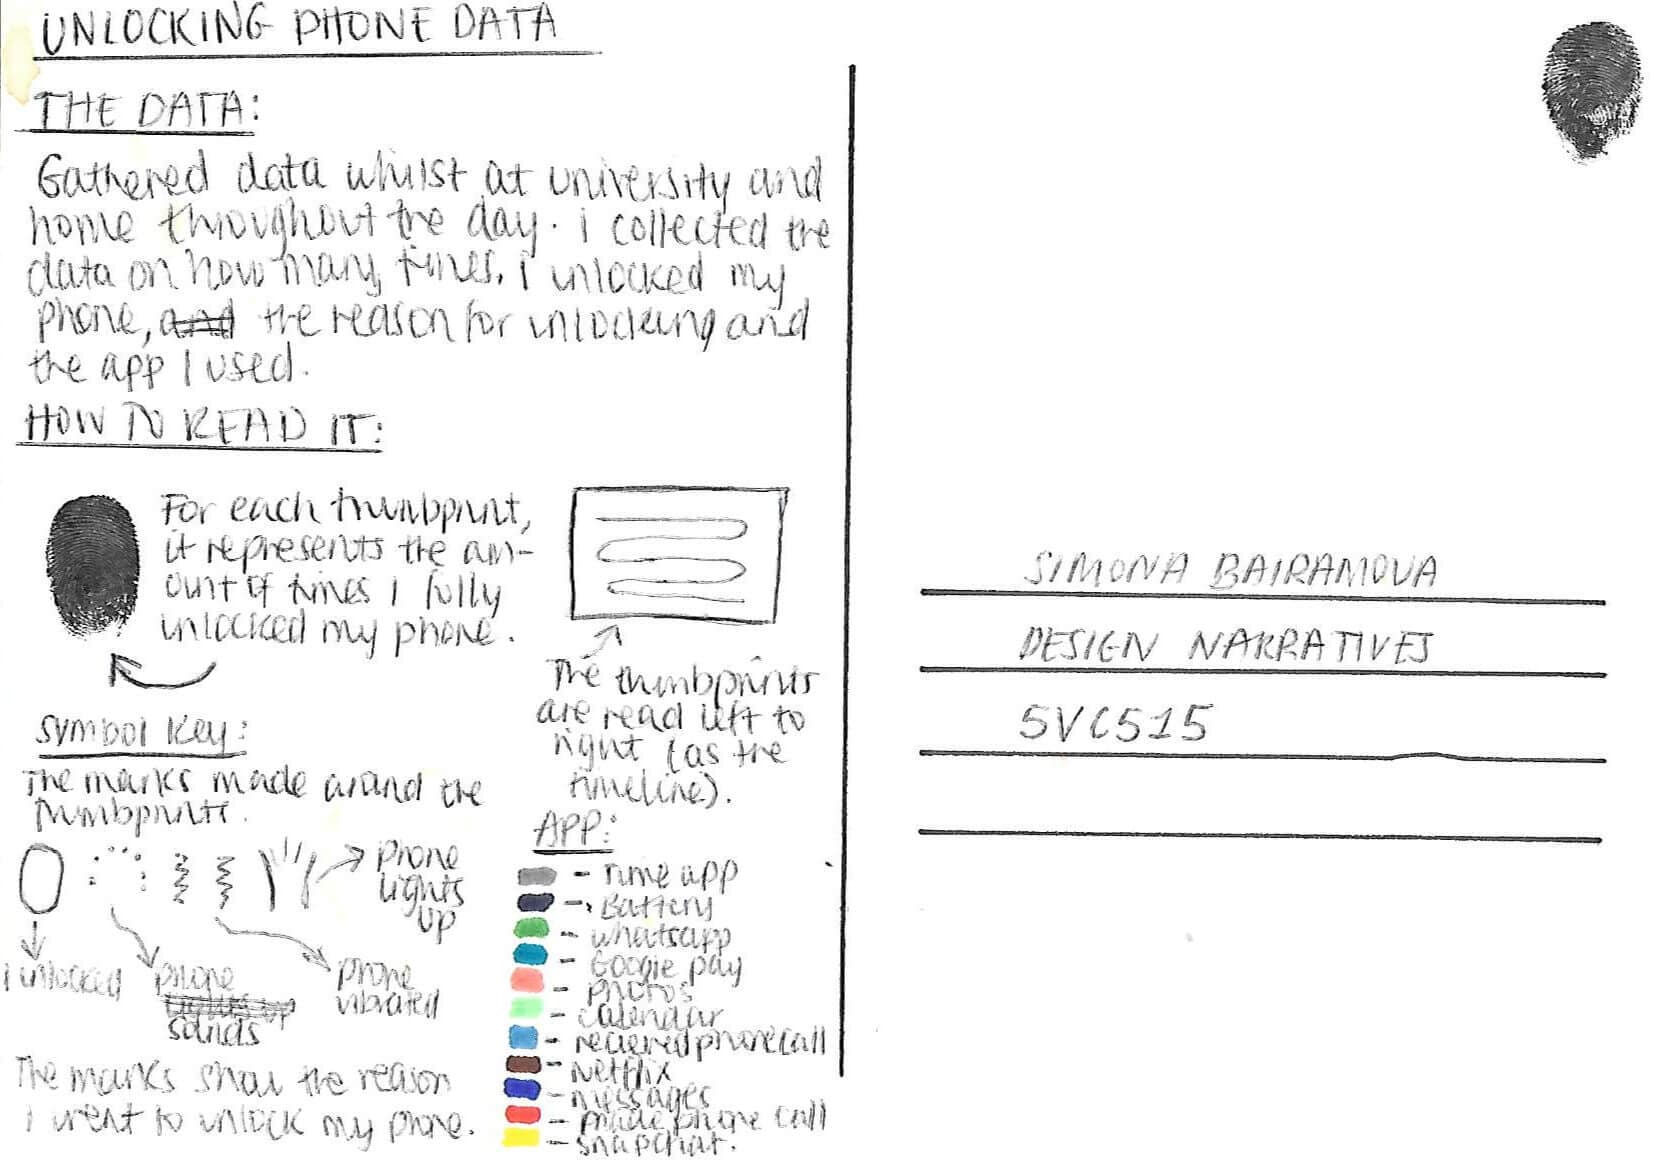 UNLOCKING PHONE DATA
THE DATA:
Gathered data whilst at university and
home throughout the day. i collected the
data on how many times. I unlocked my
phone, and the reason for unlocking and
the app I used.
HOW TO READ IT:
For each thumbprint,
it represents the am-
ount of times I fully
unlocked my phone.
The thumbprints
are read left to
right (as the
timeline).
Symbol Key:
The marks made around the
thumbprints.
phone
lights
up
I unlocked
phone
lights up
sounds
phone
vibrated
The marks show the reason
I went to unlock my phone.
APP:
- Time app
- Battery
- whatsapp
- Google pay
- photos
- calendar
- recieved phone call
- Netflix
- messages
- made phone call
- snapchat.
SIMONA BAIRAMOVA
DESIGN NARRATIVES
5VC515